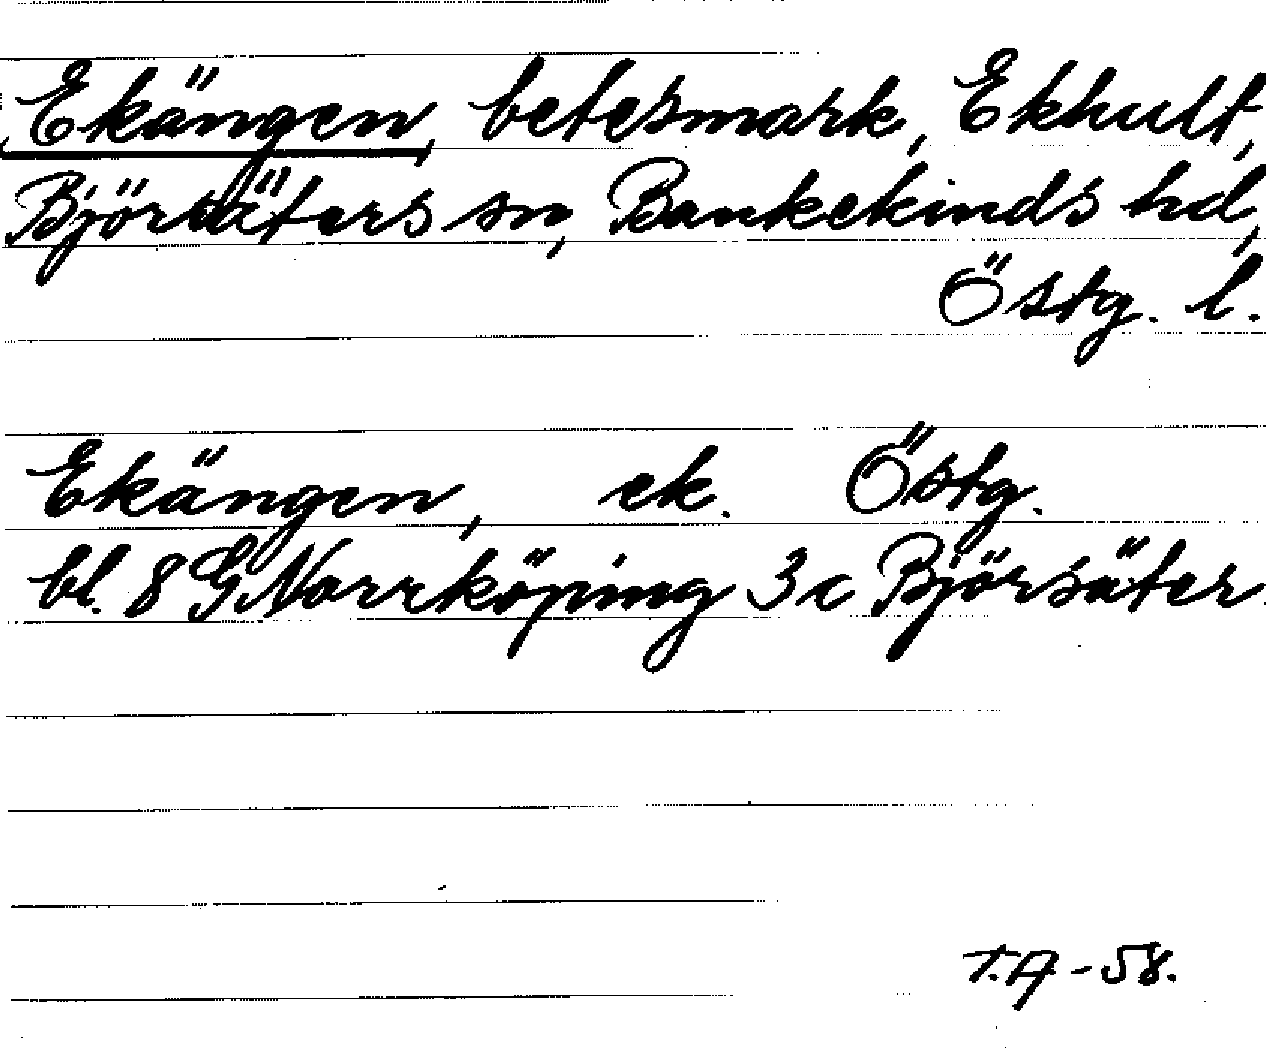 Ekängen, betesmark, Ekhult,
Björsäters sn, Bankekinds hd,
Östg. l.
Ekängen, ek. Östg.
bl. 8 G Norrköping 3 c Björsäter.
T.A-58.